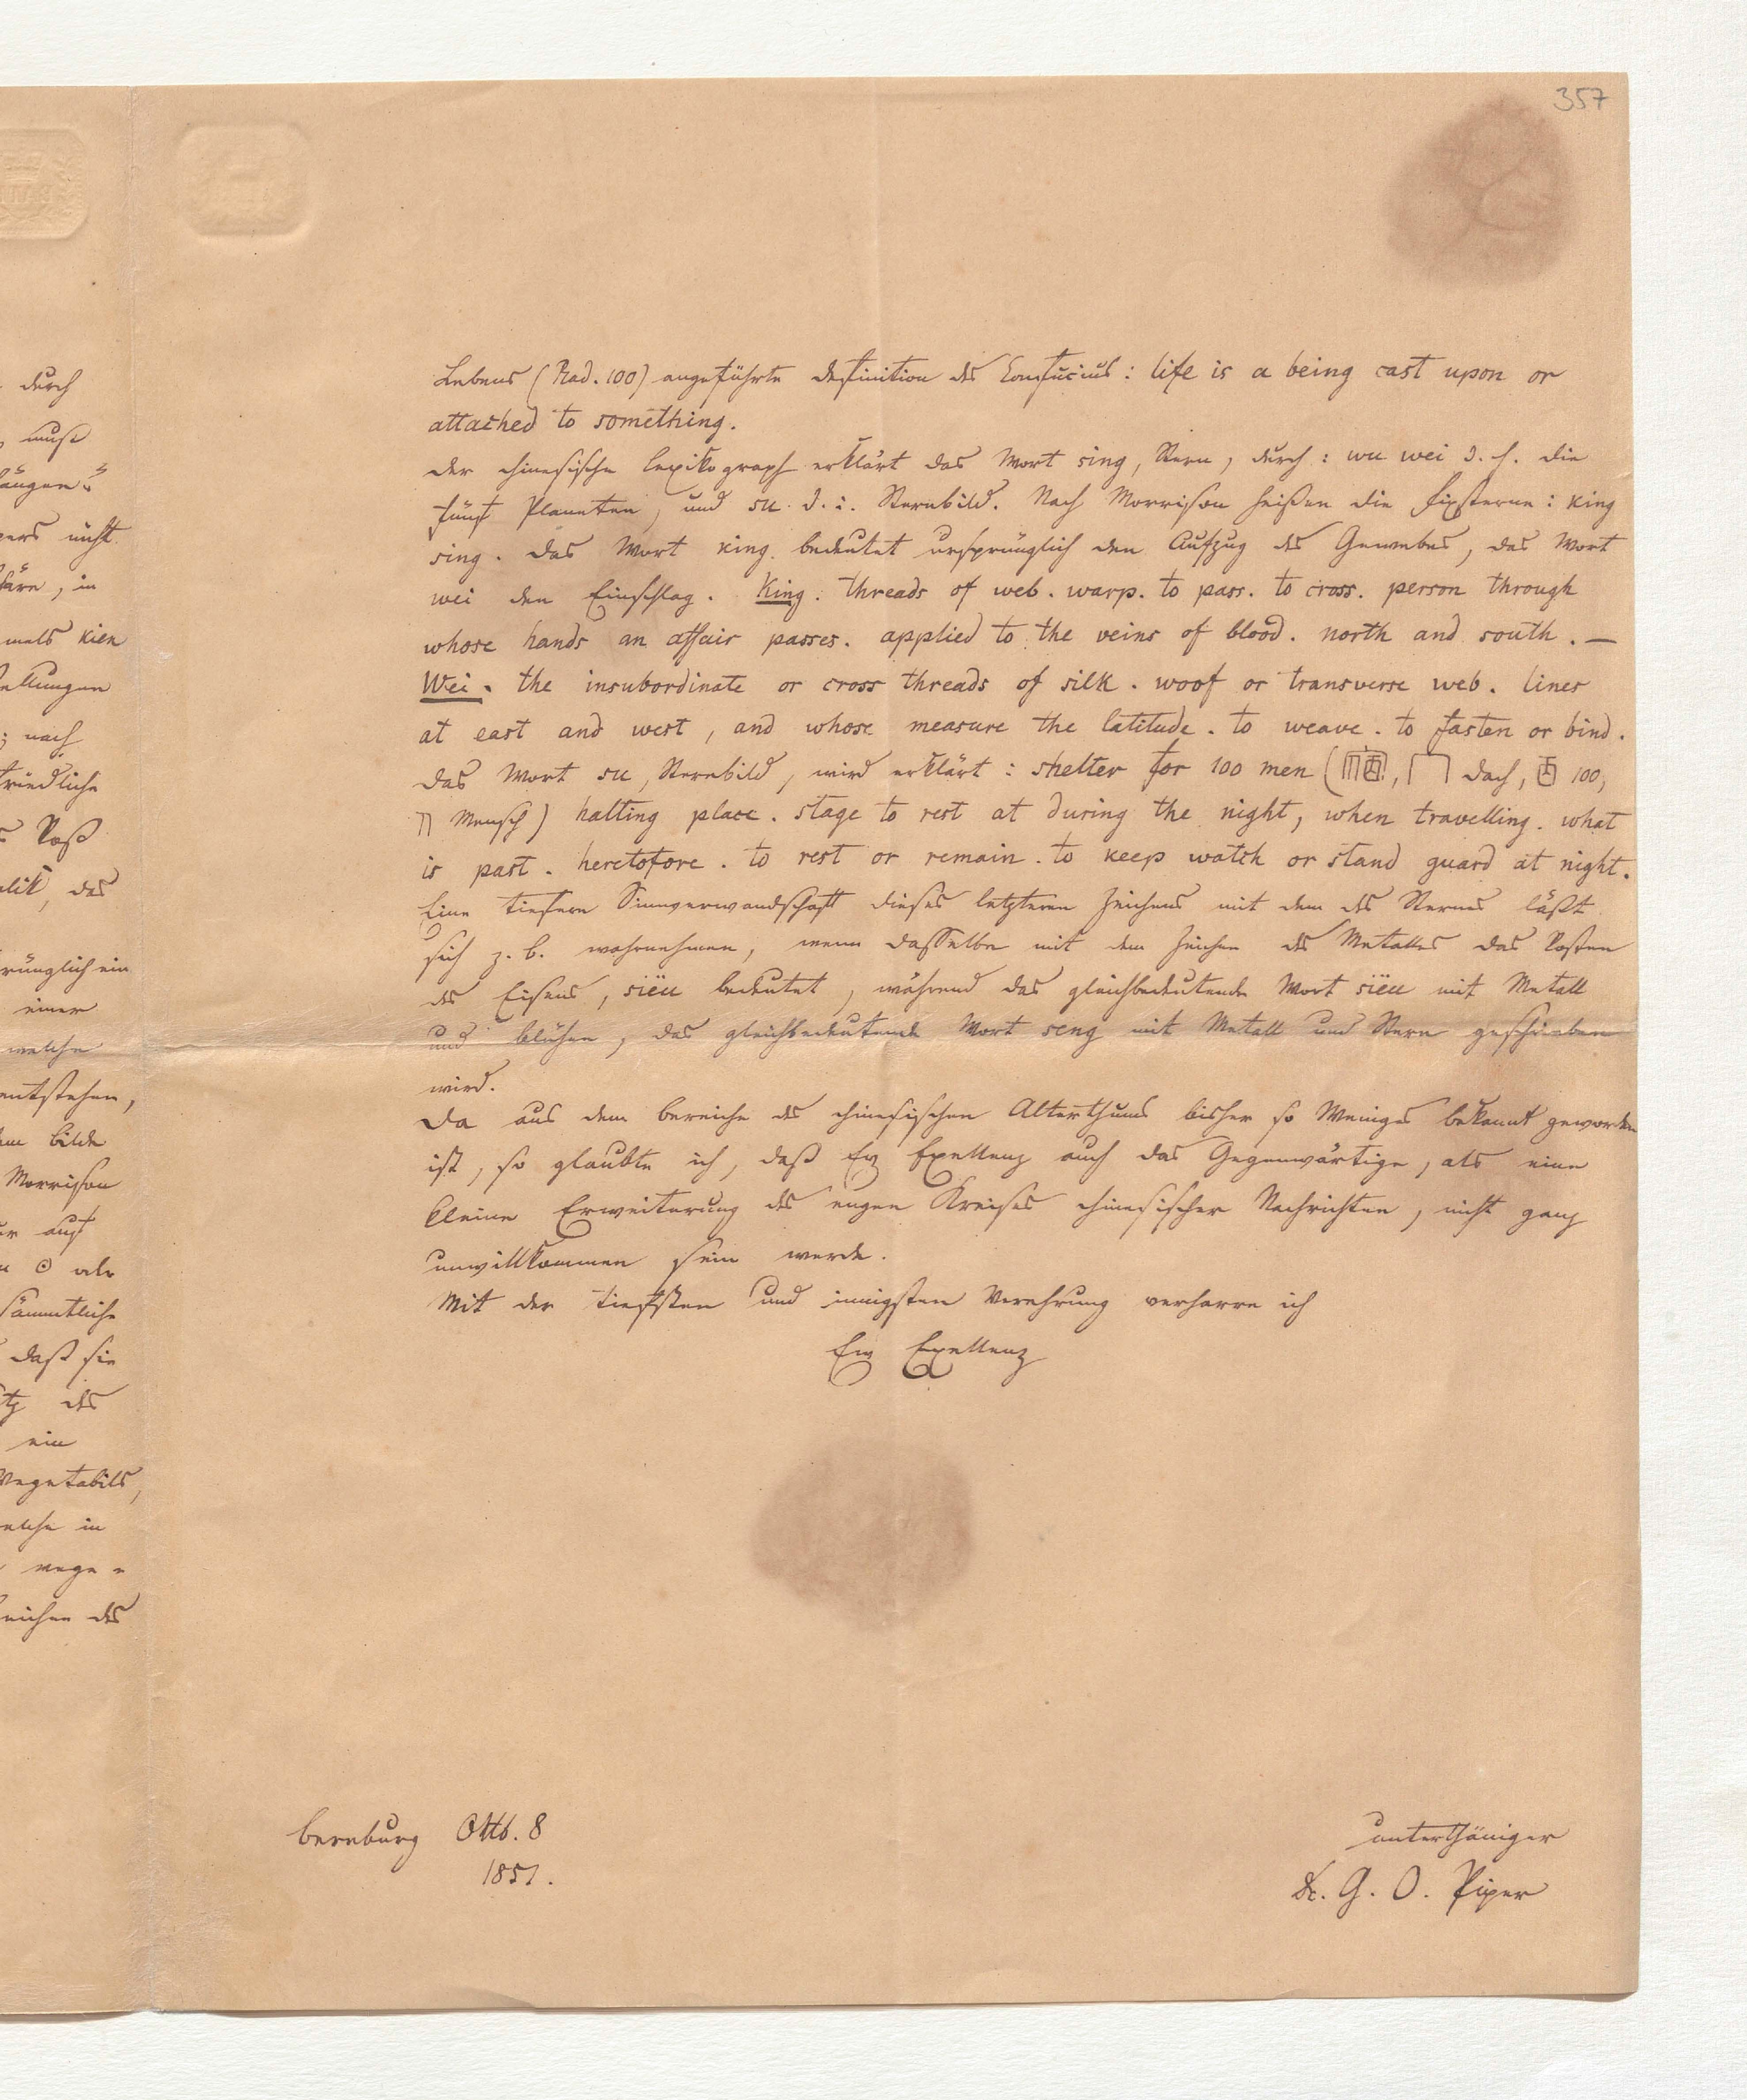 357
durch
muß
nicht
in
mals kien
nach
Roß
das
ein
einer
welche
entstehen,
Bilde
Morrison
auf
⊙ als
sämmtliche
daß sie
des
ein
Vegetabils,
welche in
vege =
des
Lebens (Rad. 100) angeführte Definition des Confucius: life is a being cast upon or
attached to something.
Der chinesische Lexikograph erklärt das Wort sing, Stern, durch: wu wei d. h. die
fünf Planeten, und su. d. i. Sternbild. Nach Morrison heißen die Fixsterne: king
sing. Das Wort king bedeutet ursprünglich den Aufzug des Gewebes, das Wort
wei den Einschlag. King. threads of web. warp. to pass. to cross. person through
whose hands an affair passes. applied to the veins of blood. north and south. —
Wei. the insubordinate or cross threads of silk. woof or transverse web. lines
at east and west, and whose measure the latitude. to weave. to fasten or bind.
Das Wort su, Sternbild, wird erklärt: shelter for 100 men ( Dach, 100,
Mensch) halting place. stage to rest at during the night, when travelling. what
is past. heretofore. to rest or remain. to keep watch or stand guard at night.
Eine tiefere Sinnverwandschaft dieses letzteren Zeichens mit dem des Sternes läßt
sich z. B. wahrnehmen, wenn dasselbe mit dem Zeichen des Metalles das Rosten
des Eisens, siëu bedeutet, während das gleichbedeutende Wort siëu mit Metall
und blühen, das gleichbedeutende Wort seng mit Metall und Stern geschrieben
wird.
Da aus dem Bereiche des chinesischen Alterthums bisher so Weniges bekannt geworden
ist, so glaubte ich, daß Ew Exellenz auch das Gegenwärtige, als eine
kleine Erweiterung des engen Kreises chinesischer Nachrichten, nicht ganz
unwillkommen sein werde.
Mit der tiefsten und innigsten Verehrung verharre ich
Ew Exellenz
unterthäniger
Dr. G. O. Piper
Bernburg Oktb. 8
1851.